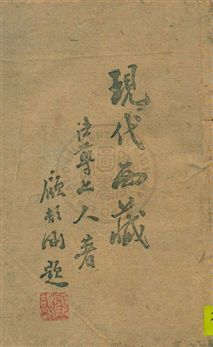 現代西藏
法尊上人著
顧頡剛題